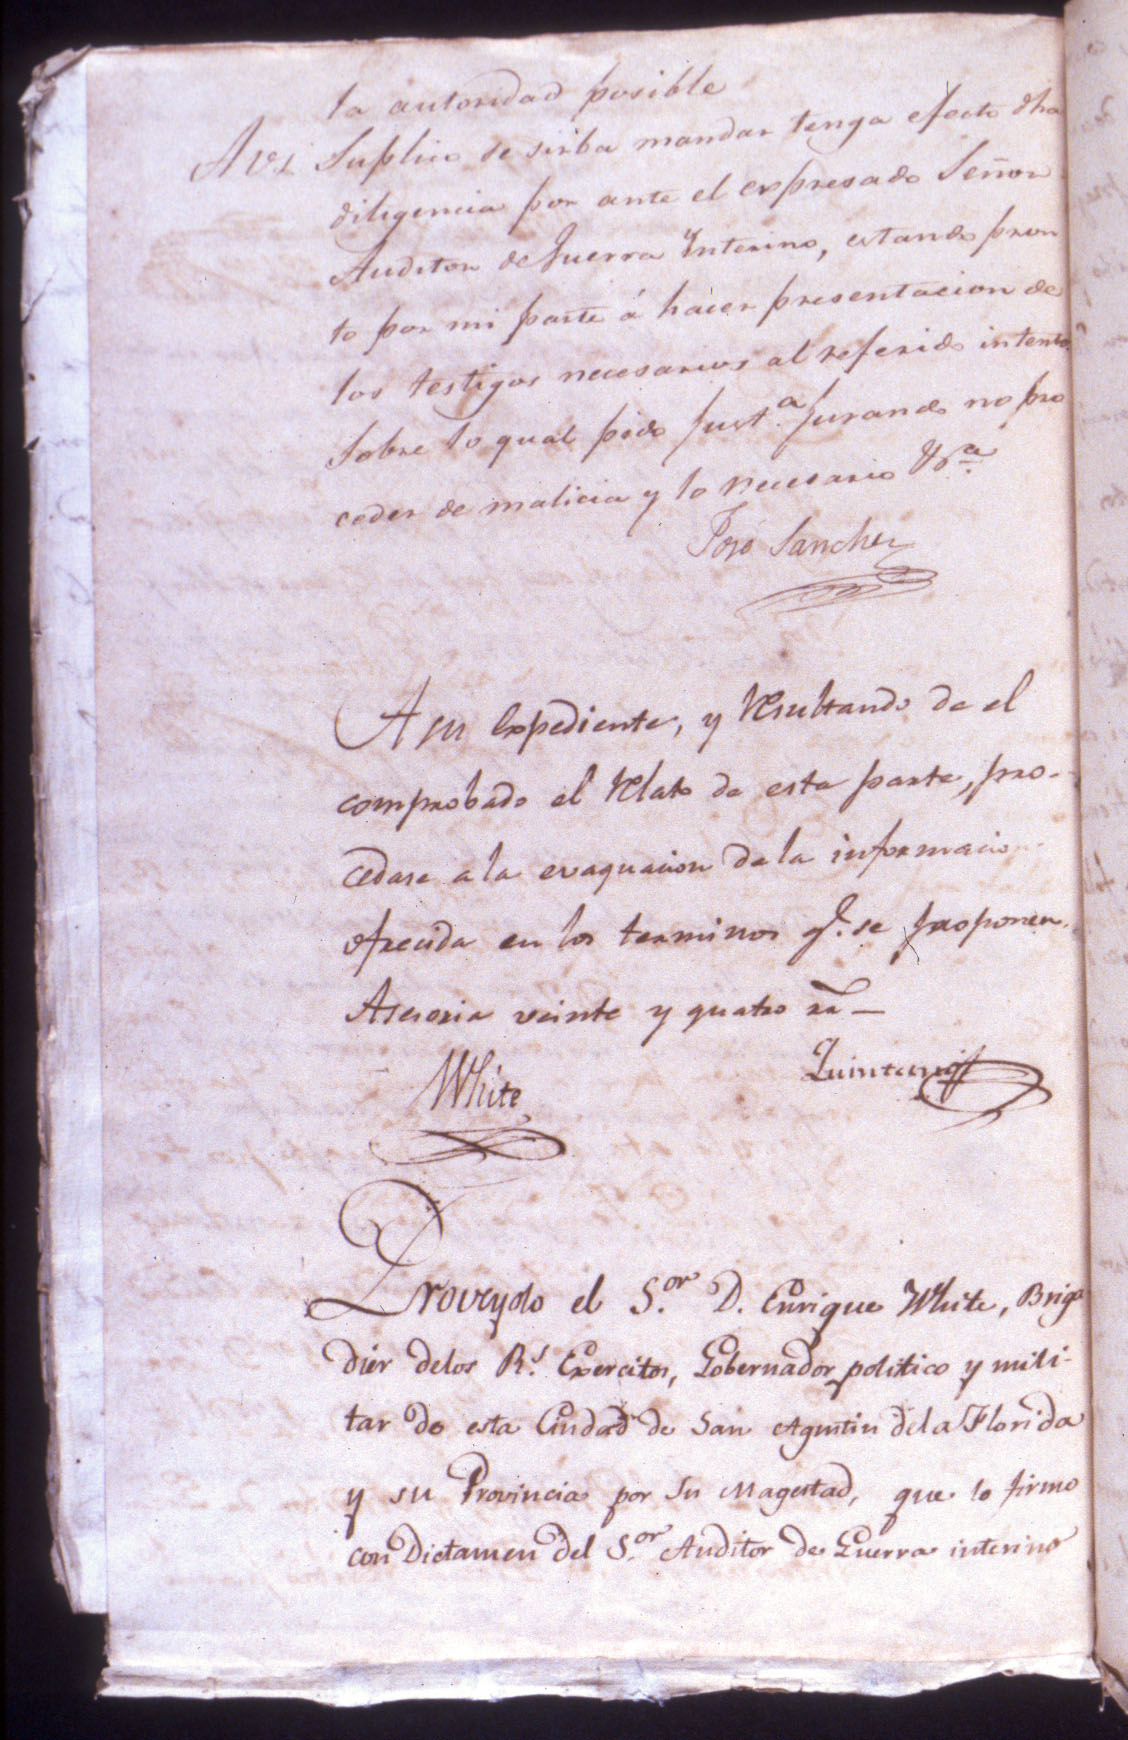 la autoridad posible
A V.S. Suplico se sirba mandar tenga efecto dha
diligencia por ante el expresado Señor
Auditor de Guerra Ynterino, estando pron
to por mi parte á hacer presentacion de
los testigos necesarios al referido intento.
Sobre lo qual pido Just.a Jurando no pro
ceder de malicia y lo necesario &r.a
José Sanchez
A su Expediente, y resultando de el
comprobado el relato de esta parte, pro-
cedase a la evaquacion de la informacion
ofrecida en los terminos q.e se proponen.
Asesoria veinte y quatro
White
Quintana
Proveydo el S.or D. Enrique White, Briga
dier delos R.s Exercitos, Gobernador politico y mili-
tar de esta Ciudad de San Agustin dela Florida
y su Provincia por Su Magestad, que lo firmo
con Dictamen del S.or Auditor de Guerra interino